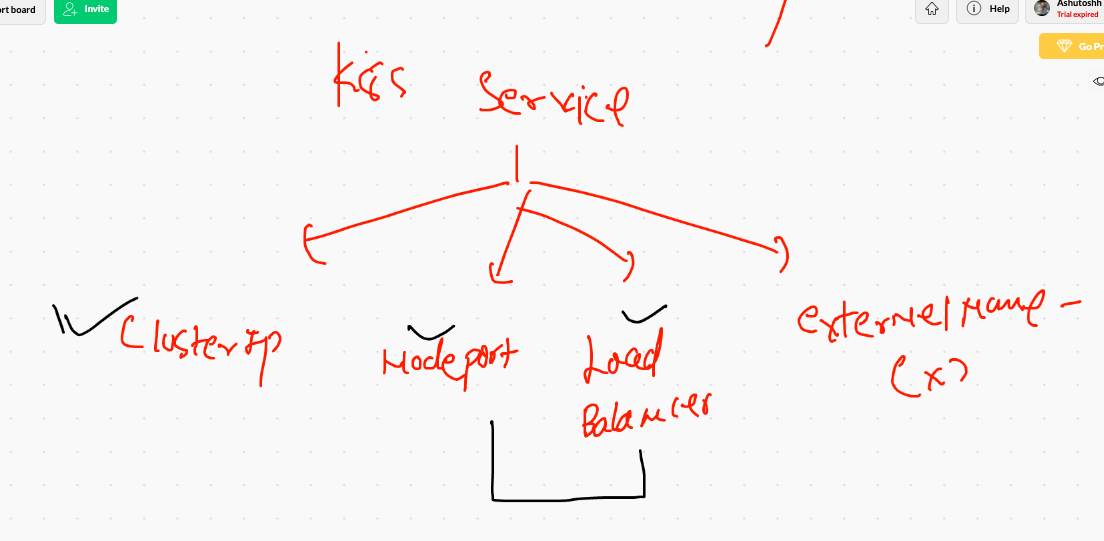 ort board
Invite
Help
Ashutoshh
Trial expired
Go Pr
K8s Service
ClusterIp
Nodeport
Load
Balancer
externelName -
(x)